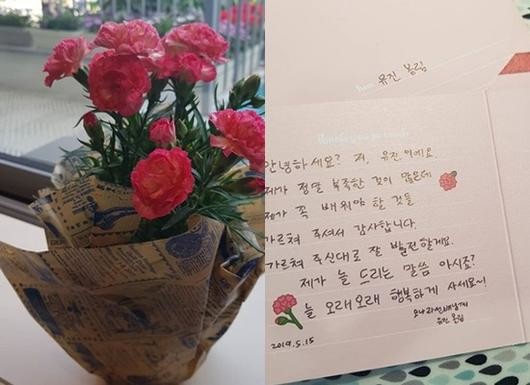 유진 올림
안녕하세요? 저, 유진이에요.
제가 정말 부족한 것이 많은데
제가 꼭 배워야 할 것들
가르쳐 주셔서 감사합니다.
가르쳐 주신대로 잘 발전할게요.
제가 늘 드리는 말씀 아시죠?
늘 오래오래 행복하게 사세요~!
유진 올림
2019.5.15